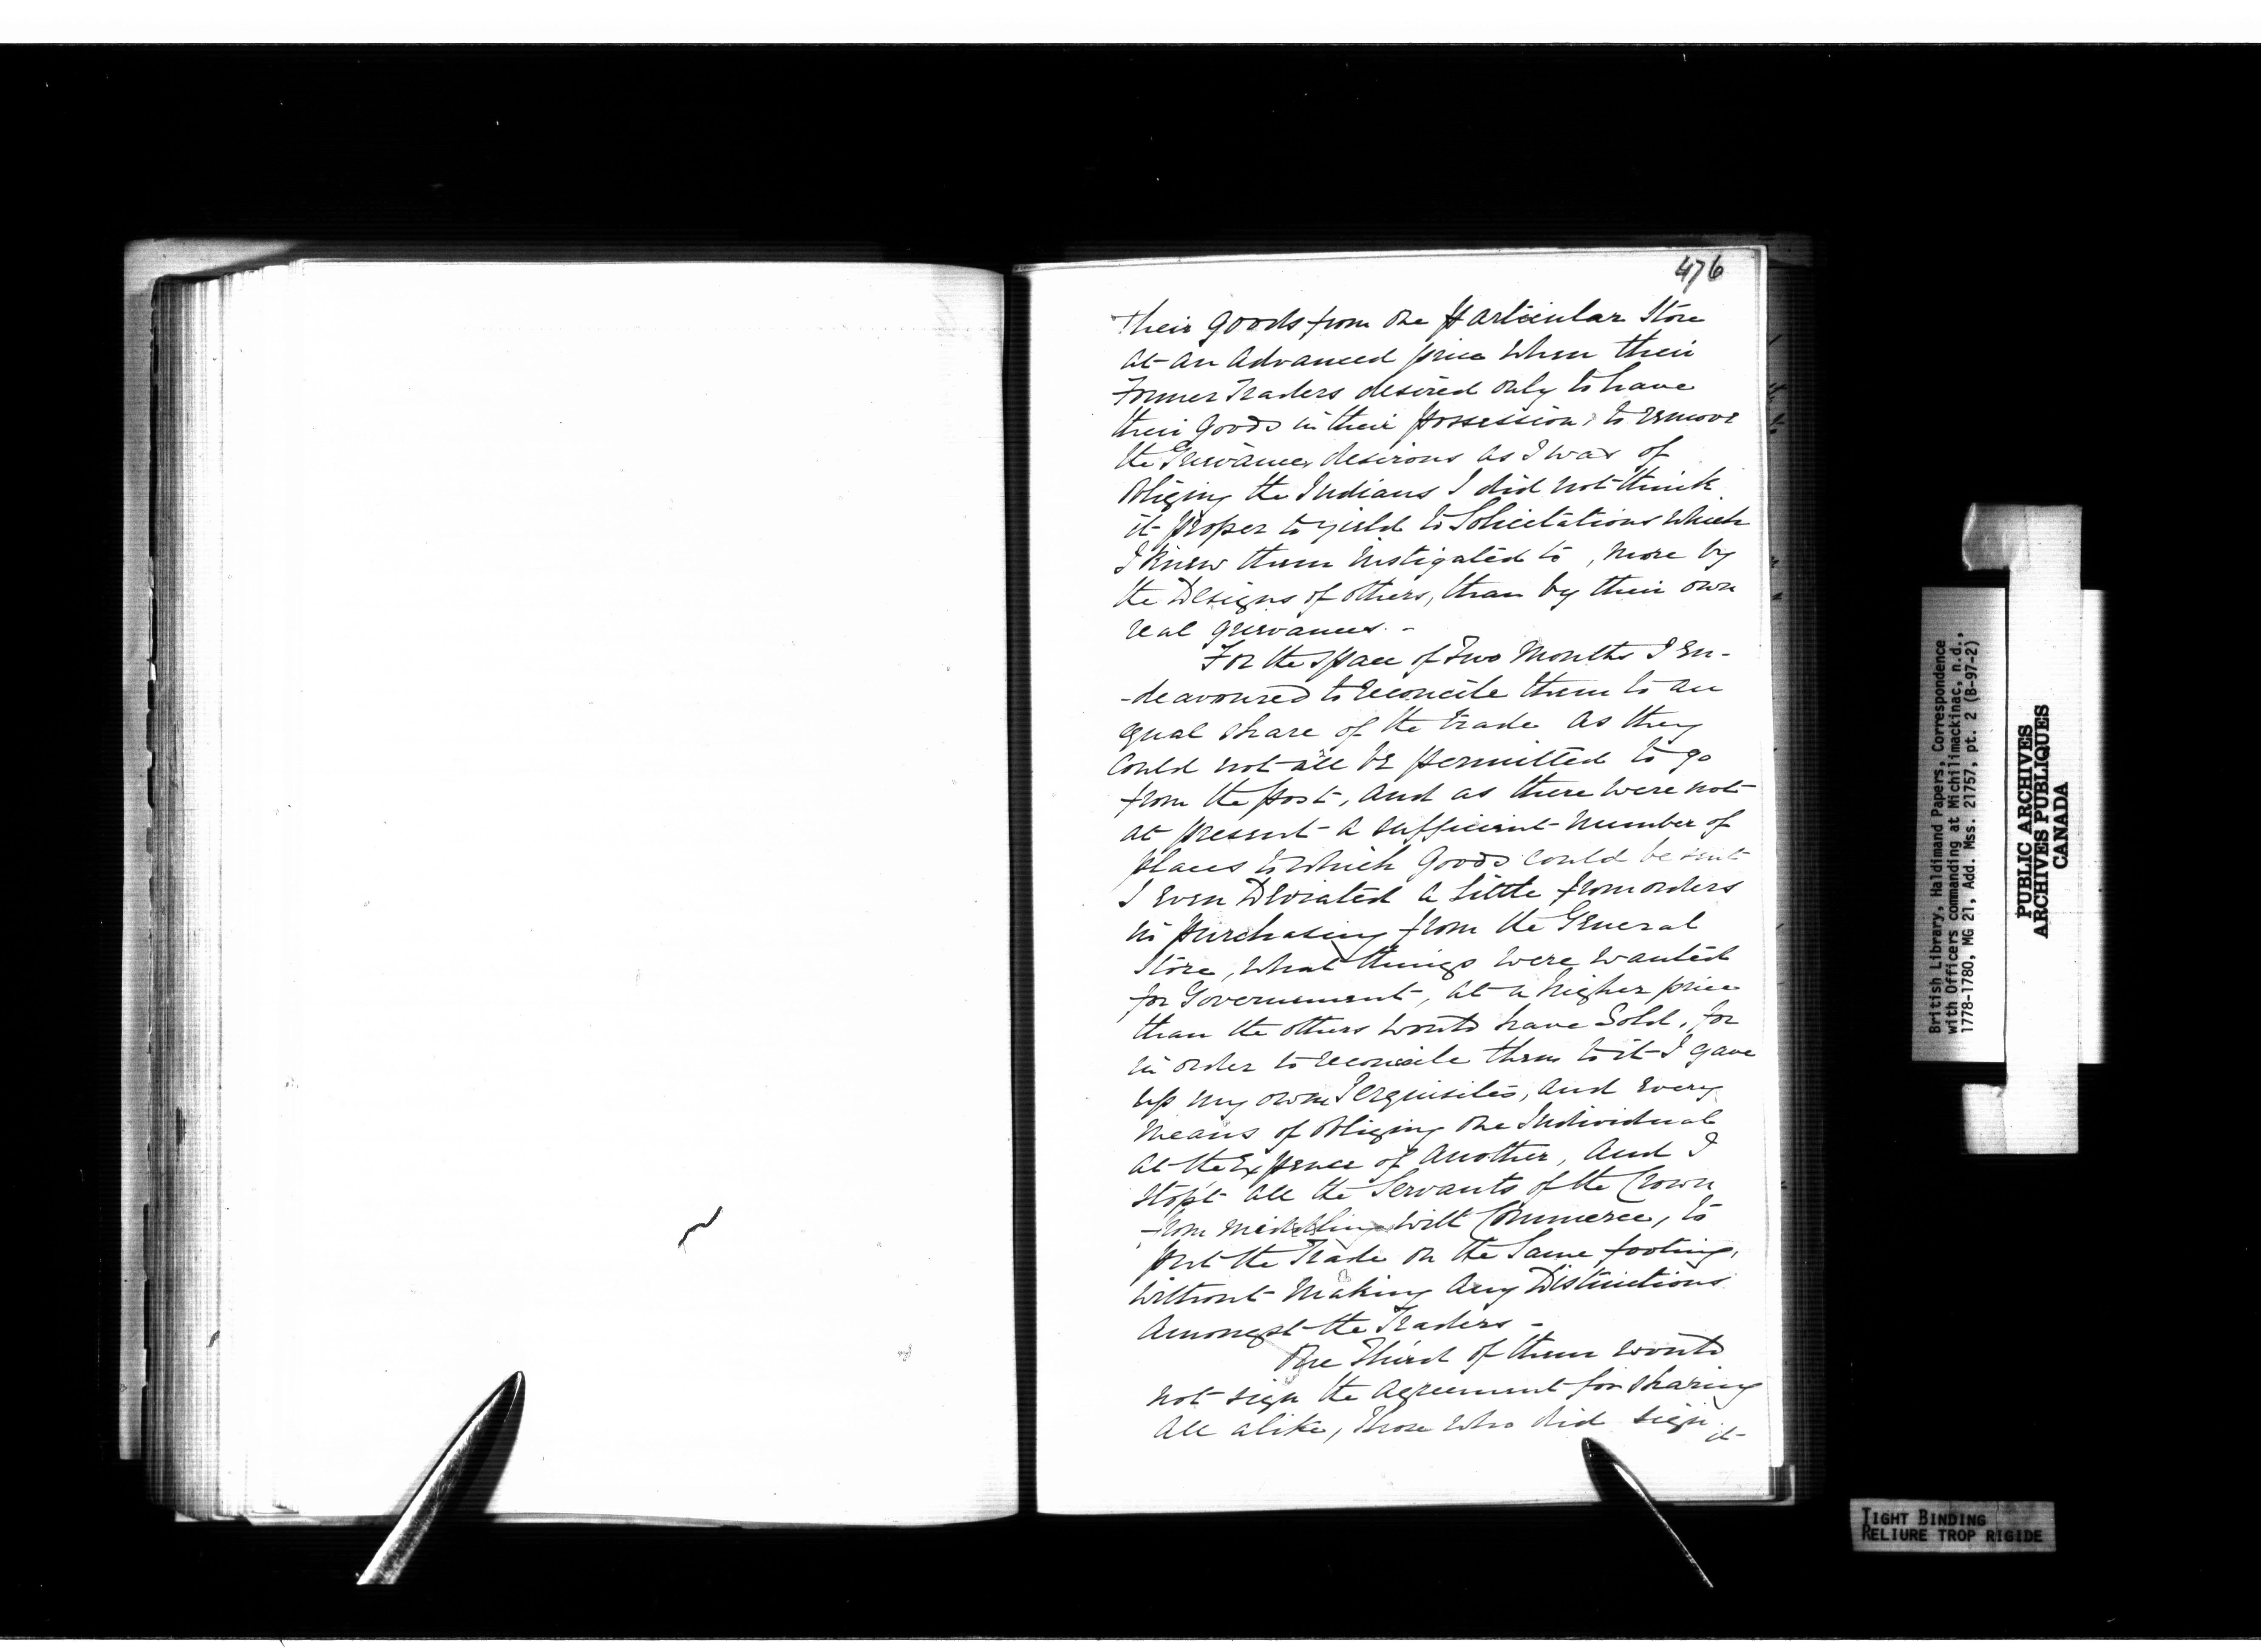 476
their goods from one particular Store
at an Advanced price when their
Former Traders desired only to have
their Goods in their possession, to remove
the Grievances, desirous as I was of
obliging the Indians I did not think
it proper to yield to Solicitations which
I knew them instigated to, more by
the Designs of others, than by their own
real grievances. -
For the space of Two Months I en-
-deavoured to reconcile them to an
equal share of the trade as they
Could not all be permitted to go
from the post, and as there were not
at present a sufficient number of
places to which Goods could be sent
I even Deviated a little from orders
in purchasing from the General
Store, what things were wanted
for Government, at a higher price
than the others would have Sold, for
in order to reconcile them to it I gave
up my own Perquisites, and every
means of obliging one Individual
at the Expence of Another, And I
stopt all the Servants of the Crown
from meddling with Commerce, to
put the Trade on the Same footing,
without Making Any Distinctions
Amongst the Traders -
One Third of them would
not sign the Agreement for sharing
All alike, those who did sign
it
British Library, Haldimand Papers, Correspondence
with Officers commanding at Michilimackinac, n.d.,
1778-1780, MG 21, Add. Mss. 21757, pt. 2 (B-97-2)
PUBLIC ARCHIVES
ARCHIVES PUBLIQUES
CANADA
TIGHT BINDING
RELIURE TROP RIGIDE